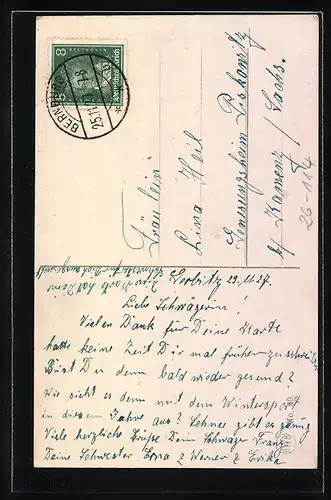 8
BEETHOVEN
8
Deutsches Reich
BERNBURG
25.11.
Fräulein
Lina Heil
Genesungsheim Piskowitz
b/ Kamenz / Sachs.
26-114
Gerbitz 23.11.27.
Liebe Schwägerin!
Vielen Dank für Deine Karte
hatte keine Zeit Dir mal früher zu schreiben
Bist Du denn bald wieder gesund?
Wie sieht es denn mit dem Wintersport
in diesem Jahre aus? Schnee gibt es genug
Viele herzliche Grüße Dein Schwager Franz
Deine Schwester Erna & Werner & Erika